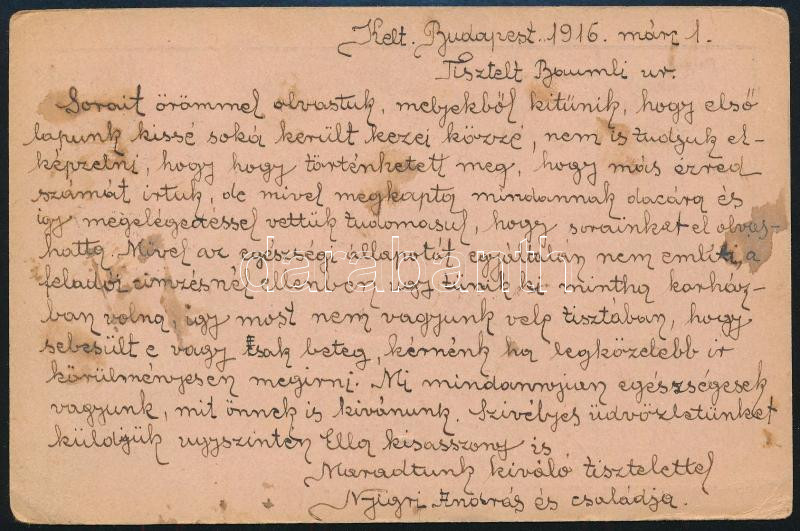 Kelt. Budapest. 1916. márc 1.
Tisztelt Baumli ur.
Sorait örömmel olvastuk, melyekből kitünik, hogy első
lapunk kissé soká került kezei közzé, nem is tudjuk el-
képzelni, hogy hogy történhetett meg, hogy más ezred
számát irtuk, de mivel megkapta mindannak dacára és
igy megelégedéssel vettük tudomásul, hogy sorainkat el olvas-
hatta. Mivel az egészségi állapotát egyátalán nem emliti, a
feladói cimzésnél ellenben ugy tünik ki mintha korház-
ban volna, igy most nem vagyunk vele tisztában, hogy
sebesült e vagy csak beteg, kérnénk ha legközelebb ir
körülményesen megirni. Mi mindannyian egészségesek
vagyunk, mit önnek is kivánunk. Szivélyes üdvözletünket
küldjük ugyszintén Ella kisasszony is
Maradtunk kiváló tisztelettel
Nyigri András és családja.
darabanth